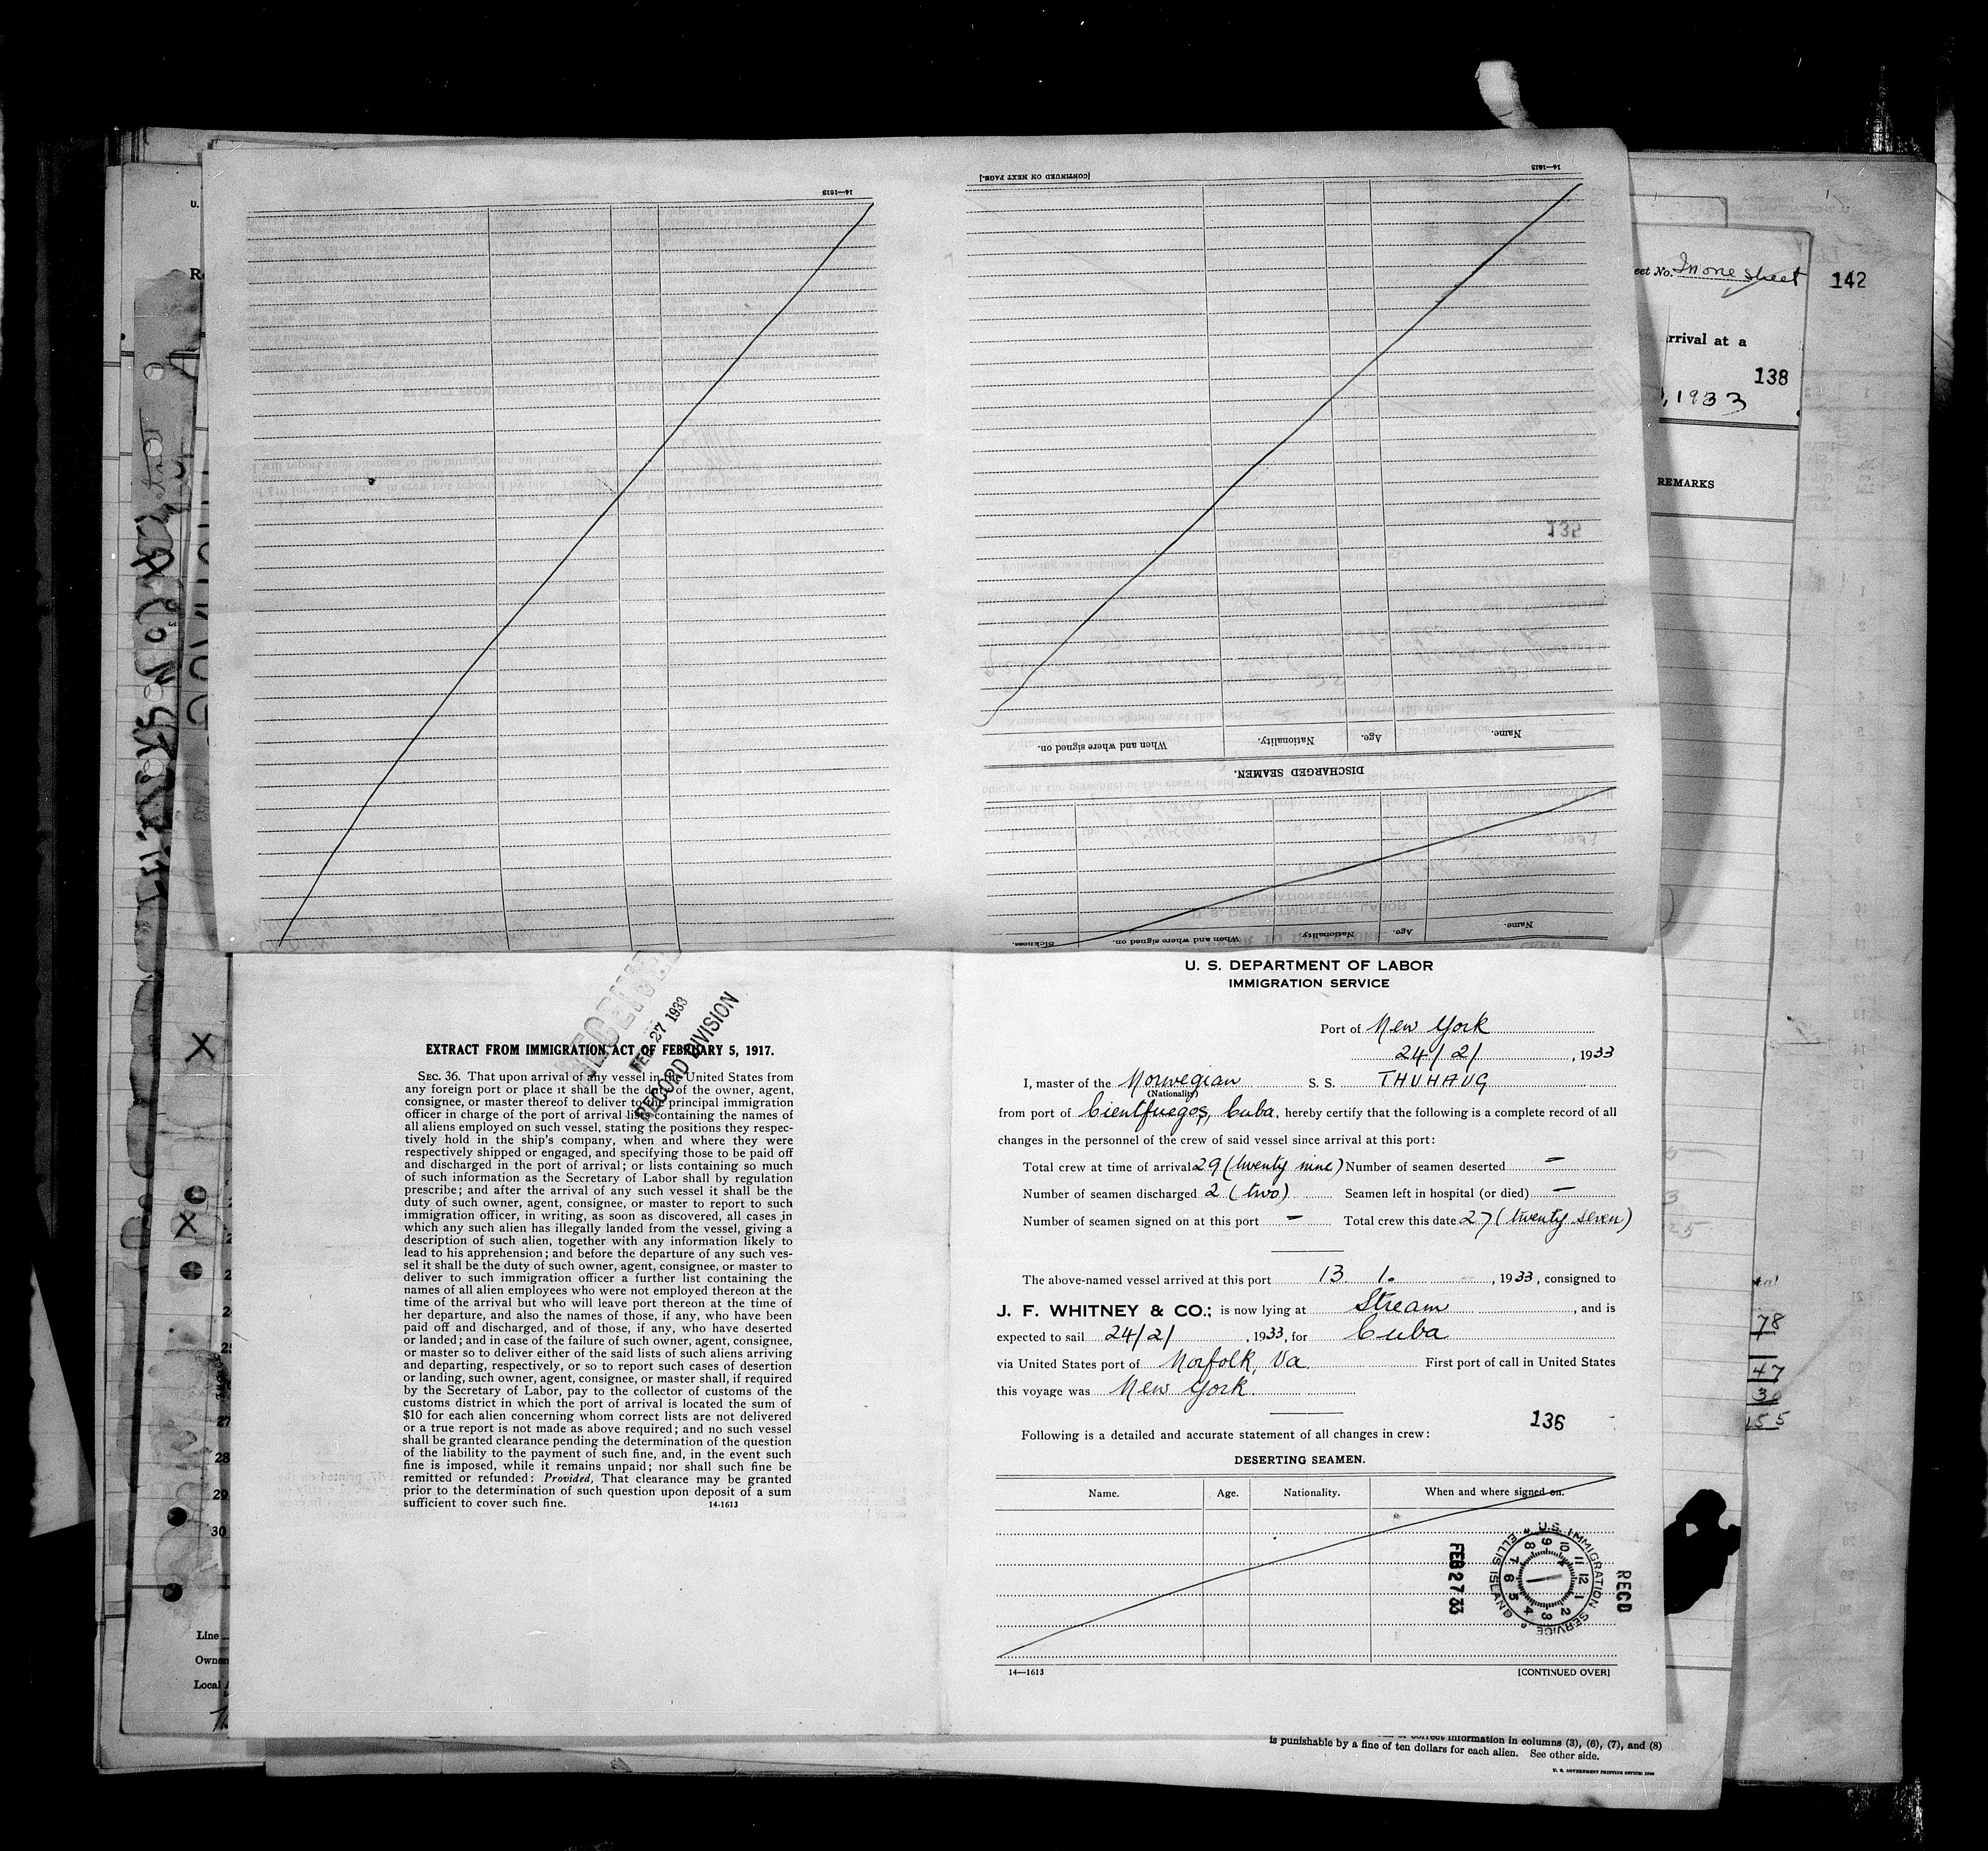 142
eet No. In one sheet
rrival at a
138
, 1933
REMARKS
14—1613
[CONTINUED ON NEXT PAGE.]
14—1613
135
Name.
Age.
Nationality.
When and where signed on.
DISCHARGED SEAMEN.
Name.
Age.
Nationality.
When and where signed on.
Sickness.
RECEIVED
FEB 27 1933
RECORD DIVISION
EXTRACT FROM IMMIGRATION ACT OF FEBRUARY 5, 1917.
SEC. 36. That upon arrival of any vessel in the United States from
any foreign port or place it shall be the duty of the owner, agent,
consignee, or master thereof to deliver to the principal immigration
officer in charge of the port of arrival lists containing the names of
all aliens employed on such vessel, stating the positions they respec-
tively hold in the ship's company, when and where they were
respectively shipped or engaged, and specifying those to be paid off
and discharged in the port of arrival; or lists containing so much
of such information as the Secretary of Labor shall by regulation
prescribe; and after the arrival of any such vessel it shall be the
duty of such owner, agent, consignee, or master to report to such
immigration officer, in writing, as soon as discovered, all cases in
which any such alien has illegally landed from the vessel, giving a
description of such alien, together with any information likely to
lead to his apprehension; and before the departure of any such ves-
sel it shall be the duty of such owner, agent, consignee, or master to
deliver to such immigration officer a further list containing the
names of all alien employees who were not employed thereon at the
time of the arrival but who will leave port thereon at the time of
her departure, and also the names of those, if any, who have been
paid off and discharged, and of those, if any, who have deserted
or landed; and in case of the failure of such owner, agent, consignee,
or master so to deliver either of the said lists of such aliens arriving
and departing, respectively, or so to report such cases of desertion
or landing, such owner, agent, consignee, or master shall, if required
by the Secretary of Labor, pay to the collector of customs of the
customs district in which the port of arrival is located the sum of
$10 for each alien concerning whom correct lists are not delivered
or a true report is not made as above required; and no such vessel
shall be granted clearance pending the determination of the question
of the liability to the payment of such fine, and, in the event such
fine is imposed, while it remains unpaid; nor shall such fine be
remitted or refunded: Provided, That clearance may be granted
prior to the determination of such question upon deposit of a sum
sufficient to cover such fine. 14-1613
U. S. DEPARTMENT OF LABOR
IMMIGRATION SERVICE
Port of New York
24/2/, 1933
I, master of the Norwegian S. S. THUHAUG
(Nationality)
from port of Cientfuegos, Cuba, hereby certify that the following is a complete record of all
changes in the personnel of the crew of said vessel since arrival at this port:
Total crew at time of arrival 29 (twenty nine) Number of seamen deserted —
Number of seamen discharged 2 (two) Seamen left in hospital (or died) —
Number of seamen signed on at this port — Total crew this date 27 (twenty seven)
The above-named vessel arrived at this port 13. 1., 1933, consigned to
J. F. WHITNEY & CO.; is now lying at Stream, and is
expected to sail 24/2/, 1933, for Cuba
via United States port of Norfolk, Va. First port of call in United States
this voyage was New York.
136
Following is a detailed and accurate statement of all changes in crew:
DESERTING SEAMEN.
Name. Age. Nationality. When and where signed on.
FEB 27 33
U.S. IMMIGRATION SERVICE ELLIS ISLAND
12 1 2 3 4 5 6 7 8 9 10 11
RECD
14—1613 [CONTINUED OVER]
28
29
30
Line
Owner
Local
78
47
155
correct information in columns (3), (6), (7), and (8)
is punishable by a fine of ten dollars for each alien. See other side.
U. S. GOVERNMENT PRINTING OFFICE